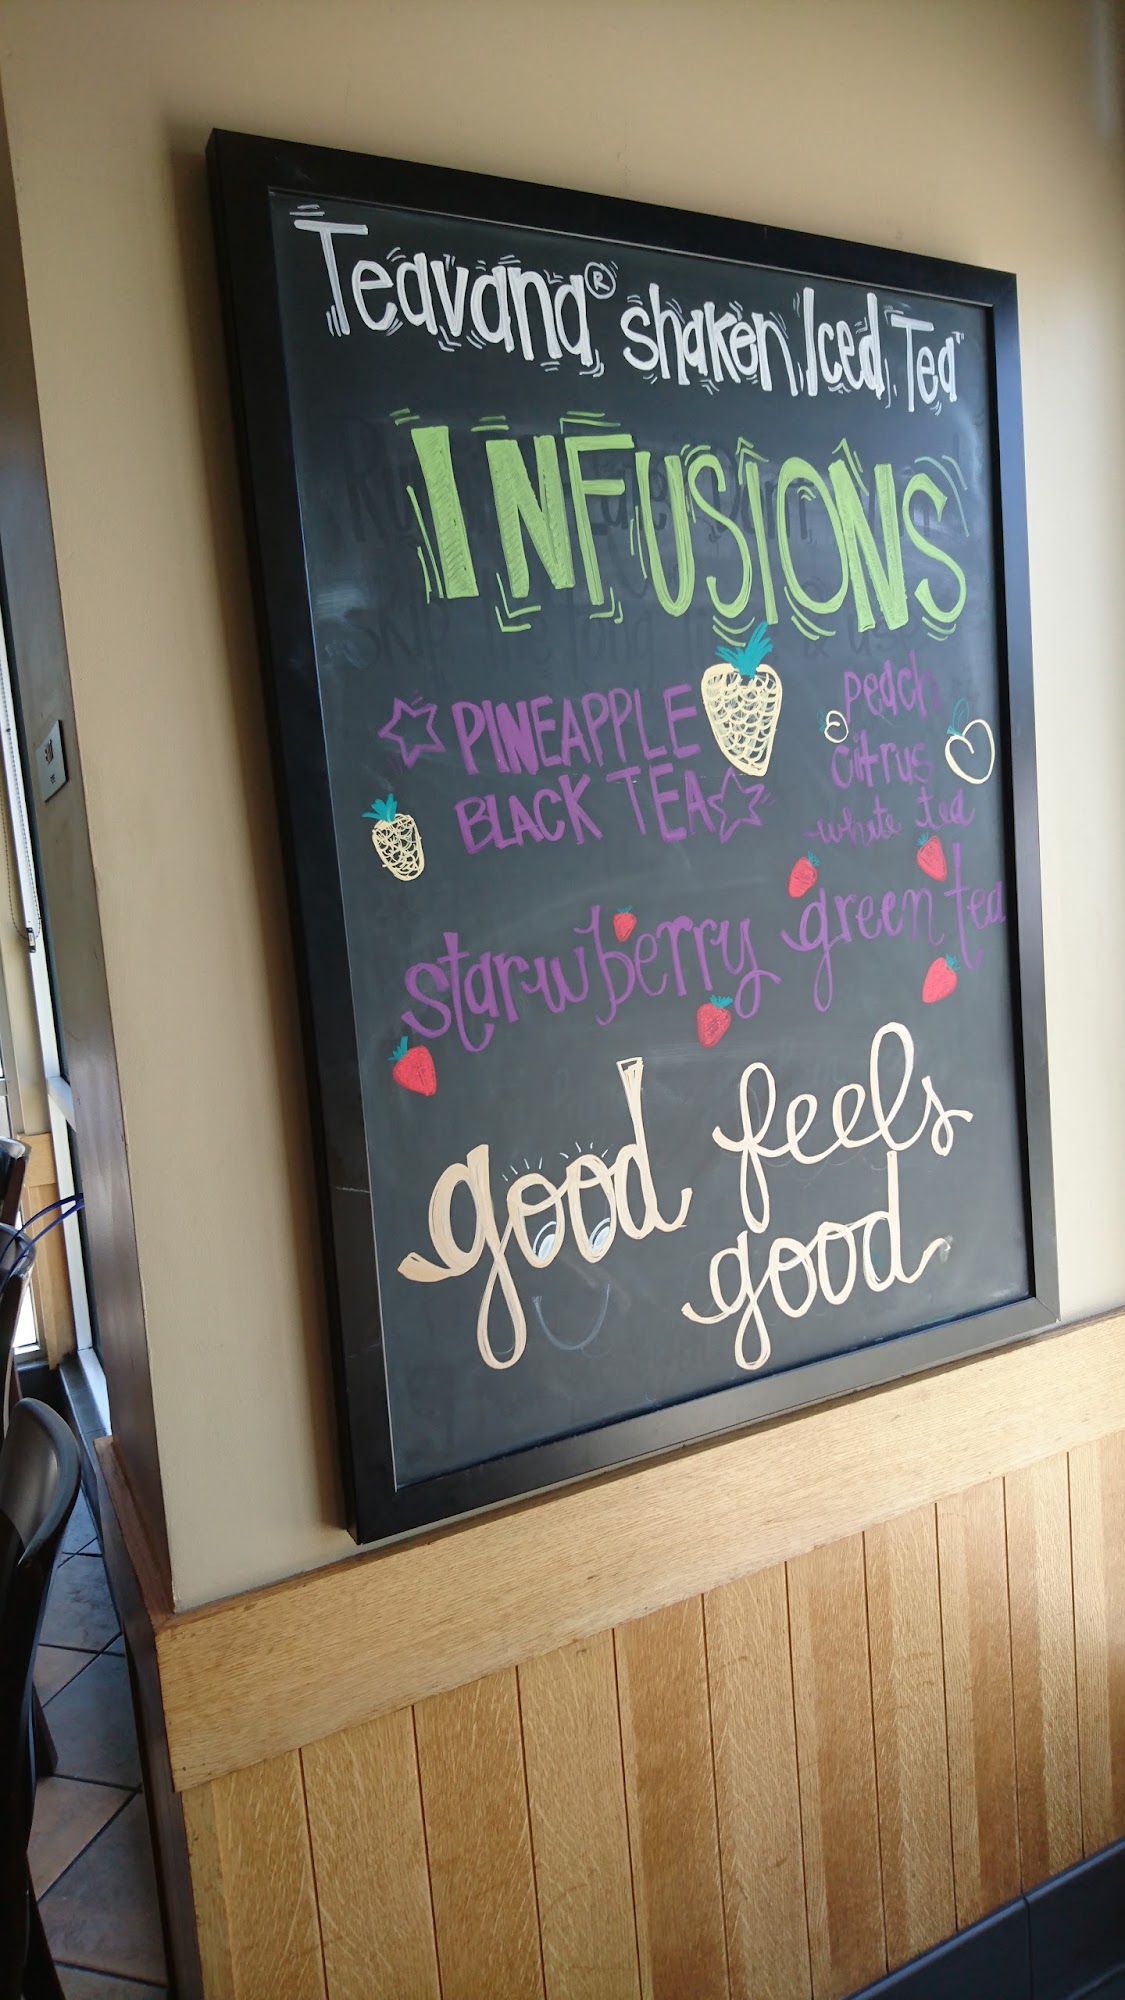 Teavana® shaken Iced Tea
INFUSIONS
PINEAPPLE
BLACK TEA
peach
citrus
white tea
starwberry green tea
good feels
good